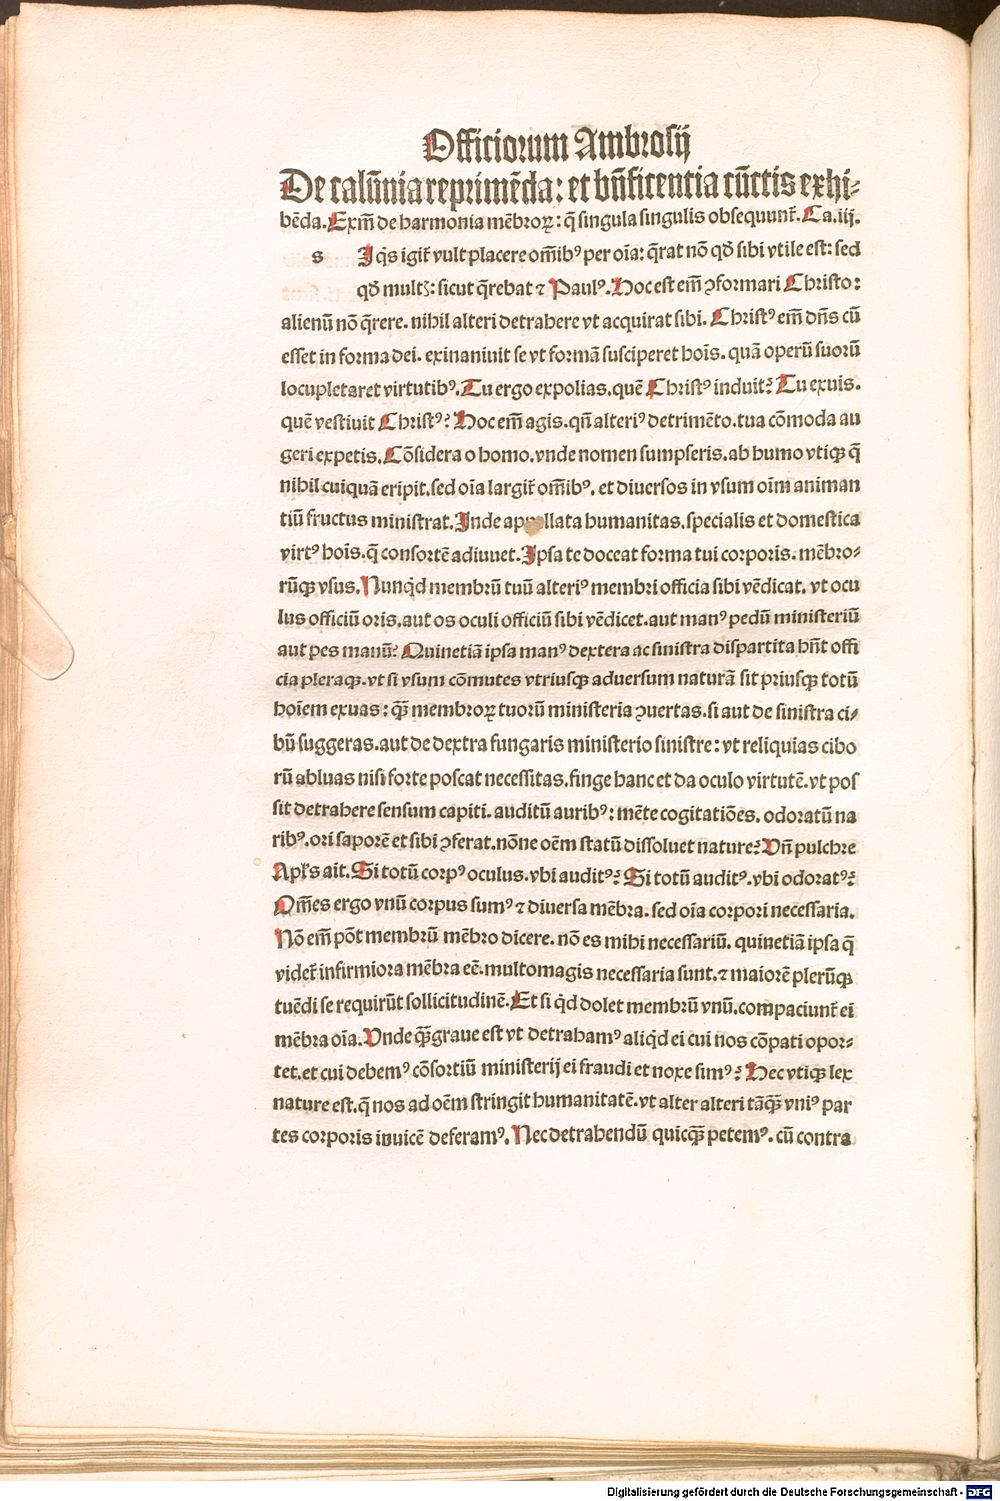 Officiorum Ambrosij
De calūnia reprimēda: et bn̄ficentia cūctis exhi-
bēda. Exm̄ de harmonia mēbroꝝ: q̄ singula singulis obsequunt᷑. Ca. iij.
s Iq̇s igit᷑ vult placere om̄ibꝰ per oīa: q̄rat nō qđ sibi vtile est: sed
qđ multꝫ: sicut q̄rebat ⁊ Paulꝰ. Hoc est em̄ ꝯformari Christo:
alienū nō q̄rere. nihil alteri detrahere vt acquirat sibi. Christꝰ em̄ dn̄s cū
esset in forma dei. exinaniuit se vt formā susciperet hoīs. quā operū suorū
locupletaret virtutibꝰ. Tu ergo expolias. quē Christꝰ induit? Tu exuis.
quē vestiuit Christꝰ? Hoc em̄ agis. qn̄ alteriꝰ detrimēto. tua cōmoda au
geri expetis. Cōsidera o homo. vnde nomen sumpseris. ab humo vtiqꝫ q̄
nihil cuiquā eripit. sed oīa largit᷑ om̄ibꝰ. et diuersos in vsum oīm animan
tiū fructus ministrat. Inde app llata humanitas. specialis et domestica
virtꝰ hoīs. q̄ consortē adiuuet. Ipsa te doceat forma tui corporis. mēbro-
rūqꝫ vsus. Nunqͥd membrū tuū alteriꝰ membri officia sibi vēdicat. vt ocu
lus officiū oris. aut os oculi officiū sibi vēdicet. aut manꝰ pedū ministeriū
aut pes manū? Quinetiā ipsa manꝰ dextera ac sinistra dispartita hn̄t offi
cia pleraqꝫ. vt si vsum cōmutes vtriusqꝫ aduersum naturā sit priusqꝫ totū
hoīem exuas: qꝫ̄ membroꝝ tuorū ministeria ꝯuertas. si aut de sinistra ci-
bū suggeras. aut de dextra fungaris ministerio sinistre: vt reliquias cibo
rū abluas nisi forte poscat necessitas. finge hanc et da oculo virtutē. vt pos
sit detrahere sensum capiti. auditū auribꝰ: mēte cogitatiōes. odoratū na
ribꝰ. ori saporē et sibī ꝯferat. nōne oēm statū dissoluet nature? Vn̄ pulchre
Apl̓s ait. Si totū corpꝰ oculus. vbi auditꝰ? Si totū auditꝰ. vbi odoratꝰ?
Om̄es ergo vnū corpus sumꝰ ⁊ diuersa mēbra. sed oīa corpori necessaria.
Nō em̄ pōt membrū mēbro dicere. nō es mihi necessariū. quinetiā ipsa q̄
videt᷑ infirmiora mēbra eē. multomagis necessaria sunt. ⁊ maiorē plerūqꝫ
tuēdi se requirūt sollicitudinē. Et si qͥd dolet membrū vnū. compaciunt᷑ ei
mēbra oīa. Vnde qꝫ̄ graue est vt detrahamꝰ aliqͥd ei cui nos cōpati opor-
tet. et cui debemꝰ cōsortiū ministerij ei fraudi et noxe simꝰ? Hec vtiqꝫ lex
nature est. q̄ nos ad oēm stringit humanitatē. vt alter alteri tāqꝫ̄ vniꝰ par
tes corporis inuicē deferamꝰ. Nec detrahendū quicqꝫ̄ petemꝰ. cū contra
Digitalisierung gefördert durch die Deutsche Forschungsgemeinschaft - DFG